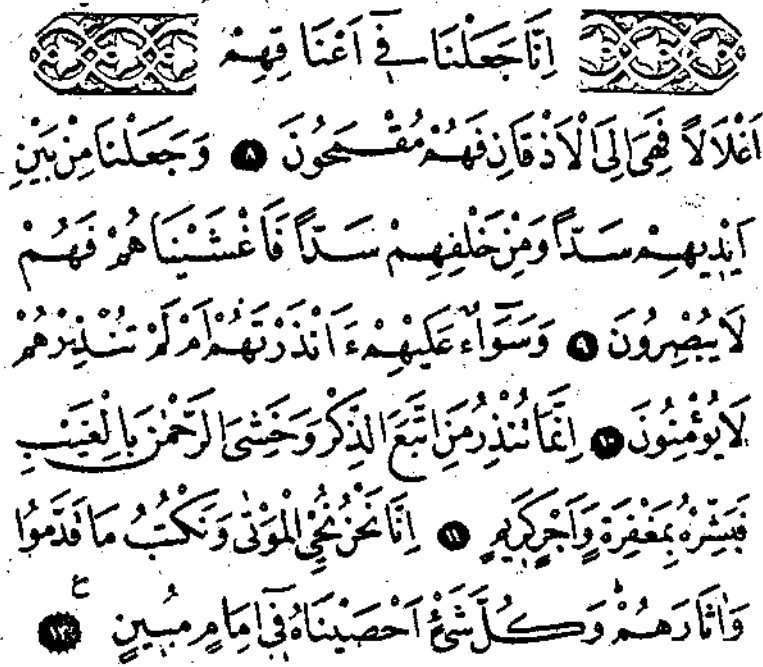 اِنَّا جَعَلْنَا فٖٓي اَعْنَاقِهِمْ
اَغْلَالًا فَهِيَ اِلَى الْاَذْقَانِ فَهُمْ مُقْمَحُونَ ٨ وَجَعَلْنَا مِنْ بَيْنِ
اَيْدٖيهِمْ سَدًّا وَمِنْ خَلْفِهِمْ سَدًّا فَاَغْشَيْنَاهُمْ فَهُمْ
لَا يُبْصِرُونَ ٩ وَسَوَٓاءٌ عَلَيْهِمْ ءَاَنْذَرْتَهُمْ اَمْ لَمْ تُنْذِرْهُمْ
لَا يُؤْمِنُونَ ١٠ اِنَّمَا تُنْذِرُ مَنِ اتَّبَعَ الذِّكْرَ وَخَشِيَ الرَّحْمٰنَ بِالْغَيْبِ
فَبَشِّرْهُ بِمَغْفِرَةٍ وَاَجْرٍ كَرٖيمٍ ١١ اِنَّا نَحْنُ نُحْيِ الْمَوْتٰى وَنَكْتُبُ مَا قَدَّمُوا
وَاٰثَارَهُمْ وَكُلَّ شَيْءٍ اَحْصَيْنَاهُ فٖٓي اِمَامٍ مُبٖينٍ ع ١٢